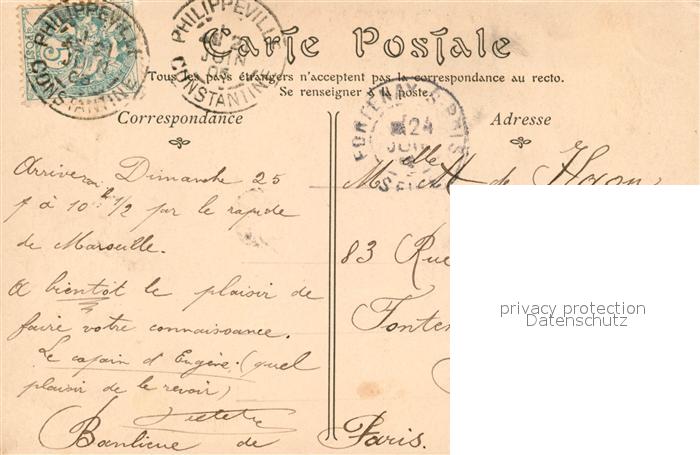 PHILIPPEVILLE
CONSTANTINE
JUIN
PHILIPPEVILLE
CONSTANTINE
JUIN
Carte Postale
Tous les pays étrangers n'acceptent pas la correspondance au recto.
Se renseigner à la poste.
Correspondance
Adresse
FONTENAY S BOIS
24
SEINE
Arriverai Dimanche 25
à 10 h 1/2 par le rapide
de Marseille.
A bientôt le plaisir de
faire votre connaissance.
Le copain d'Eugène. (quel
plaisir de le revoir)
Banlieue de Paris.
M
de Hgon
83 Rue
Fonten
privacy protection
Datenschutz